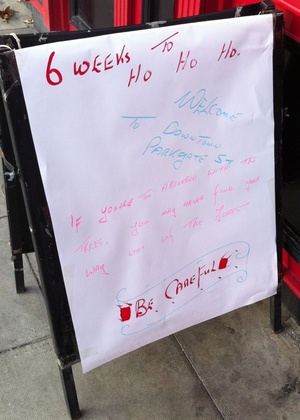 6 WEEKS TO
HO HO HO.
WELCOME
TO DOWNTOWN
PARKGATE ST
IF YOU'RE TO WITH THE
YOU MAY HAVE FIND YOUR
WAY THE
BE CAREFUL